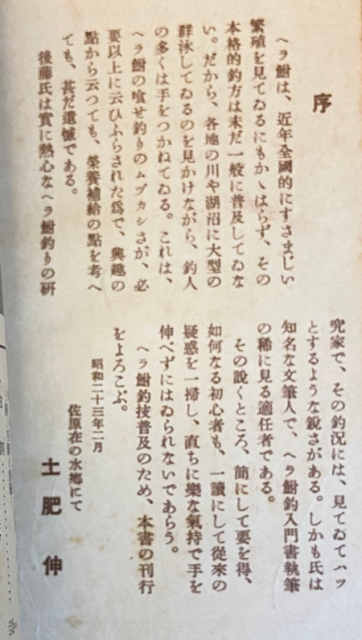 序
ヘラ鮒は、近年全國的にすさまじい
繁殖を見てゐるにもかゝはらず、その
本格的釣方は未だ一般に普及してゐな
い。だから、各地の川や湖沼に大型の
群泳してゐるのを見かけながら、釣人
の多くは手をつかねてゐる。これは、
ヘラ鮒の喰せ釣りのムヅカシさが、必
要以上に云ひふらされた爲で、興趣の
點から云つても、榮養補給の點を考へ
ても、甚だ遺憾である。
後藤氏は實に熱心なヘラ鮒釣りの硏
究家で、その釣況には、見てゐてハッ
とするような鋭さがある。しかも氏は
知名な文筆人で、ヘラ鮒釣入門書執筆
の稀に見る適任者である。
その說くところ、簡にして要を得、
如何なる初心者も、一讀にして從來の
疑惑を一掃し、直ちに樂な氣持で手を
伸べずにはゐられないであらう。
ヘラ鮒釣技普及のため、本書の刊行
をよろこぶ。
昭和二十三年二月
佐原在の水鄕にて
土肥伸